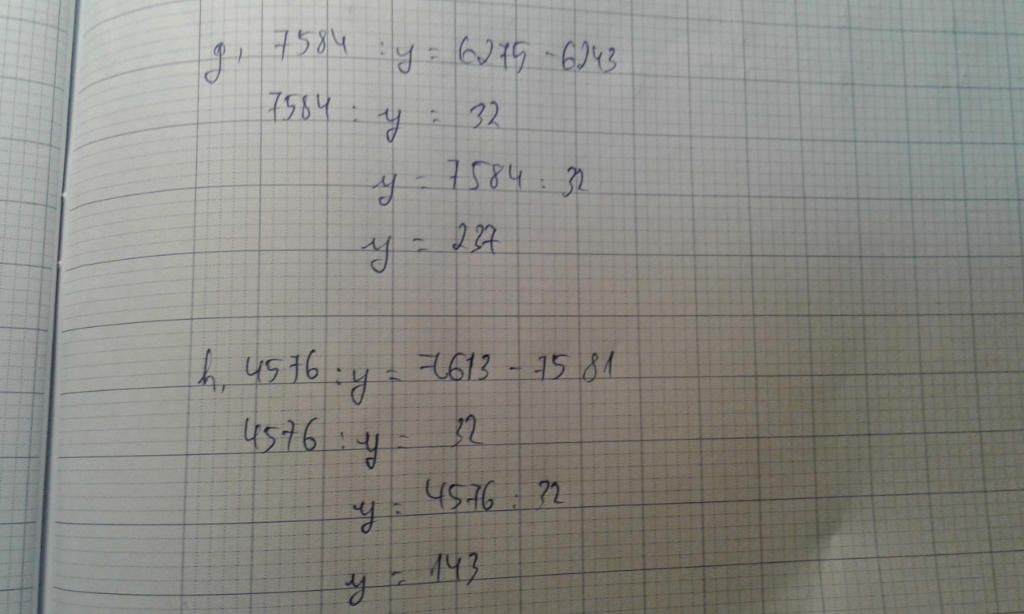 g, 7584 : y = 6275 - 6243
7584 : y = 32
y = 7584 : 32
y = 237
h, 4576 : y = 7613 - 7581
4576 : y = 32
y = 4576 : 32
y = 143